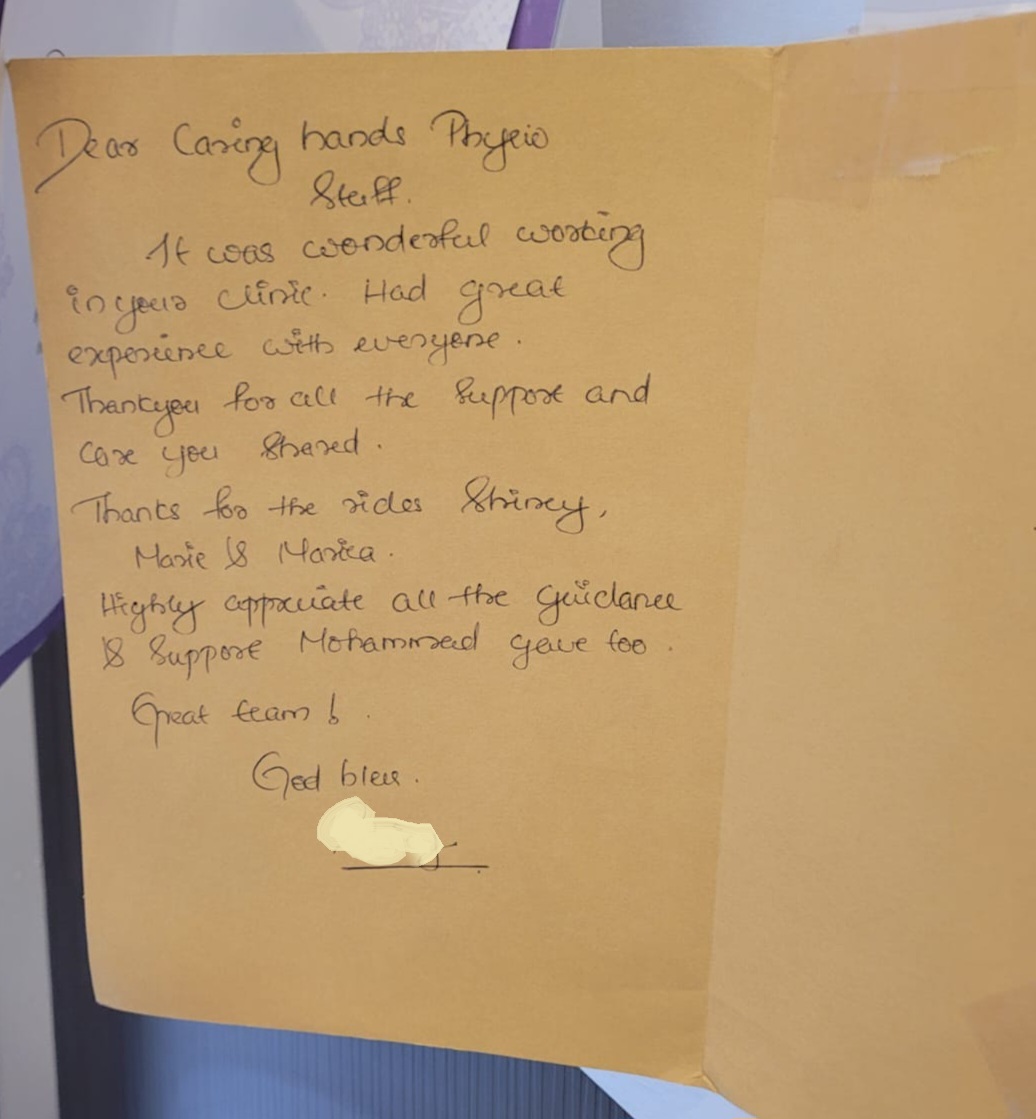 Dear Caring hands Physio
Staff.
It was wonderful working
in your clinic. Had great
experience with everyone.
Thankyou for all the support and
care you shared.
Thanks for the rides Shiney,
Marie & Marica.
Highly appreciate all the guidance
& support Mohammad gave too.
Great team!.
God bless.